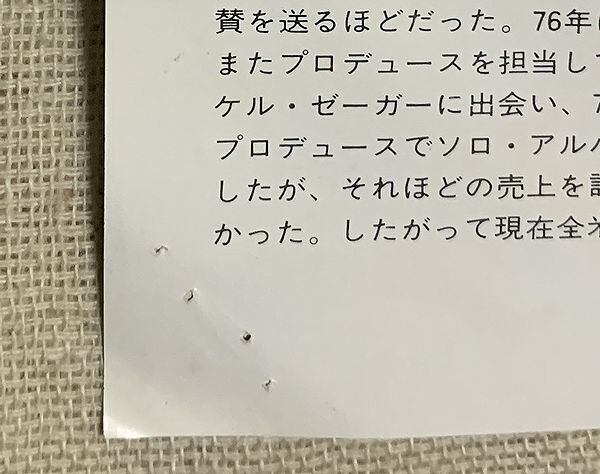 賛を送るほどだった。76年
またプロデュースを担当し
ケル・ゼーガーに出会い、7
プロデュースでソロ・アル
したが、それほどの売上を
かった。したがって現在全